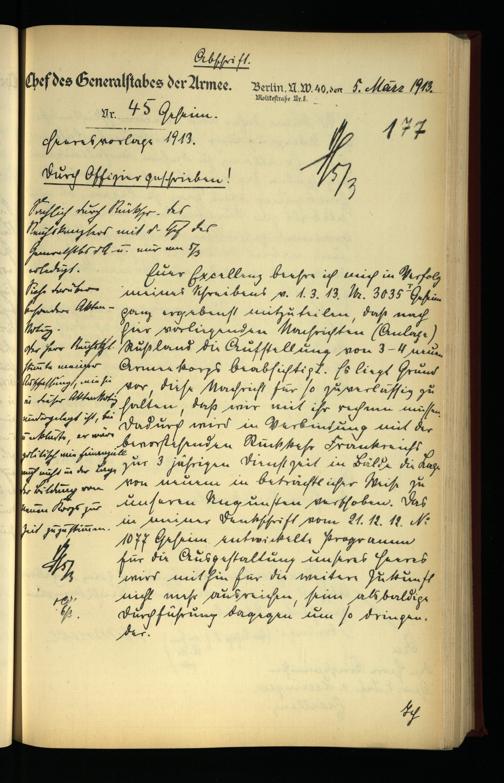 Abschrift.
Chef des Generalstabes der Armee.
Berlin, N.W. 40, den 5. März 1913.
Moltkestraße Nr. 8.
Nr. 45 Geheim.
177
Heeresvorlage 1913.
5/3
Durch Offizier geschrieben!
Sachlich durch Rückspr. des
Reichskanzlers mit d. Chef des
Generalstbs d. A. u. mir am 5/3
erledigt.
Siehe darüber
besondere Akten-
notiz.
Der Herr Reichskzl.
Auffassung, wie sie
in dieser Aktennotiz
niedergelegt ist, bei
u. erklärte, er wäre
politisch wie finanziell
auch nicht in der Lage
der Bildung von
neuen Korps zur
Zeit zuzustimmen.
5/3
Euer Exzellenz beehre ich mich in Verfolg
meines Schreibens v. 1.3.13. Nr. 3035 Geheim
ganz ergebenst mitzuteilen, daß nach
hier vorliegenden Nachrichten (Anlage)
Rußland die Aufstellung von 3-4 neuen
Armeekorps beabsichtigt. Es liegt Grund
vor, diese Nachricht für so zuverlässig zu
halten, daß wir mit ihr rechnen müssen.
Dadurch wird in Verbindung mit der
bevorstehenden Rückkehr Frankreichs
zur 3 jährigen Dienstzeit in Bälde die Lage
von neuem in beträchtlicher Weise zu
unseren Ungunsten verschoben. Das
in meiner Denkschrift vom 21.12.12. No
1077 Geheim entwickelte Programm
für die Ausgestaltung unseres Heeres
wird mithin für die weitere Zukunft
nicht mehr ausreichen, seine alsbaldige
Durchführung dagegen um so dringen-
der.
Ich